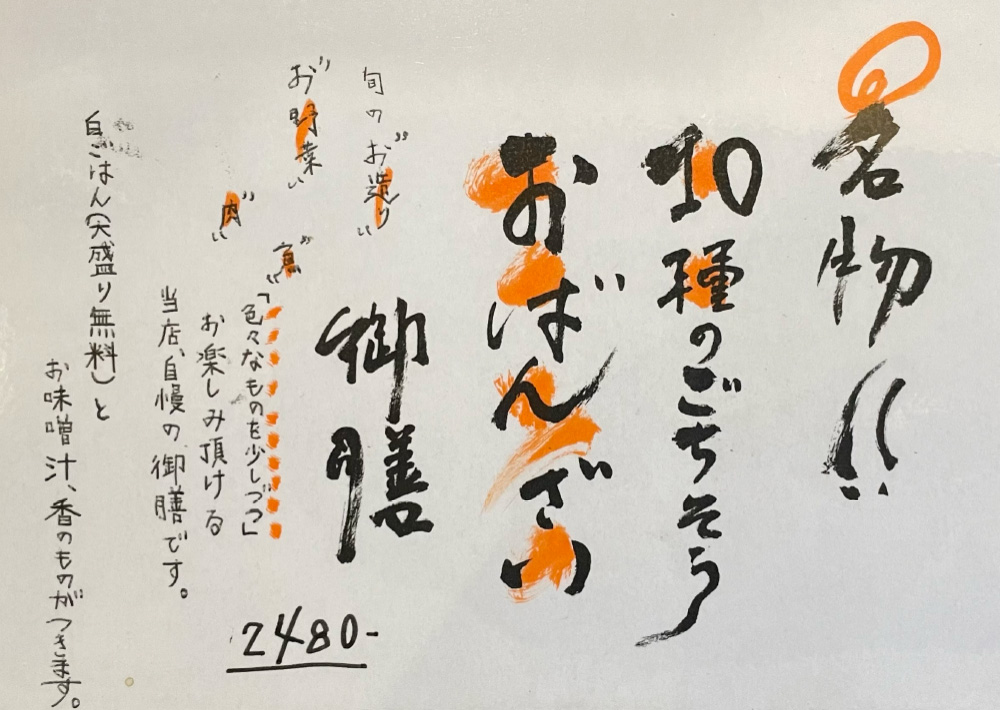 名物!!
10種のごちそう
おばんざい
御膳
2480-
旬の"お造り"
お"野菜"
"魚"
"肉"
「色々なものを少しづつ」
お楽しみ頂ける
当店、自慢の、御膳です。
白ごはん(大盛り無料)と
お味噌汁、香のものがつきます。